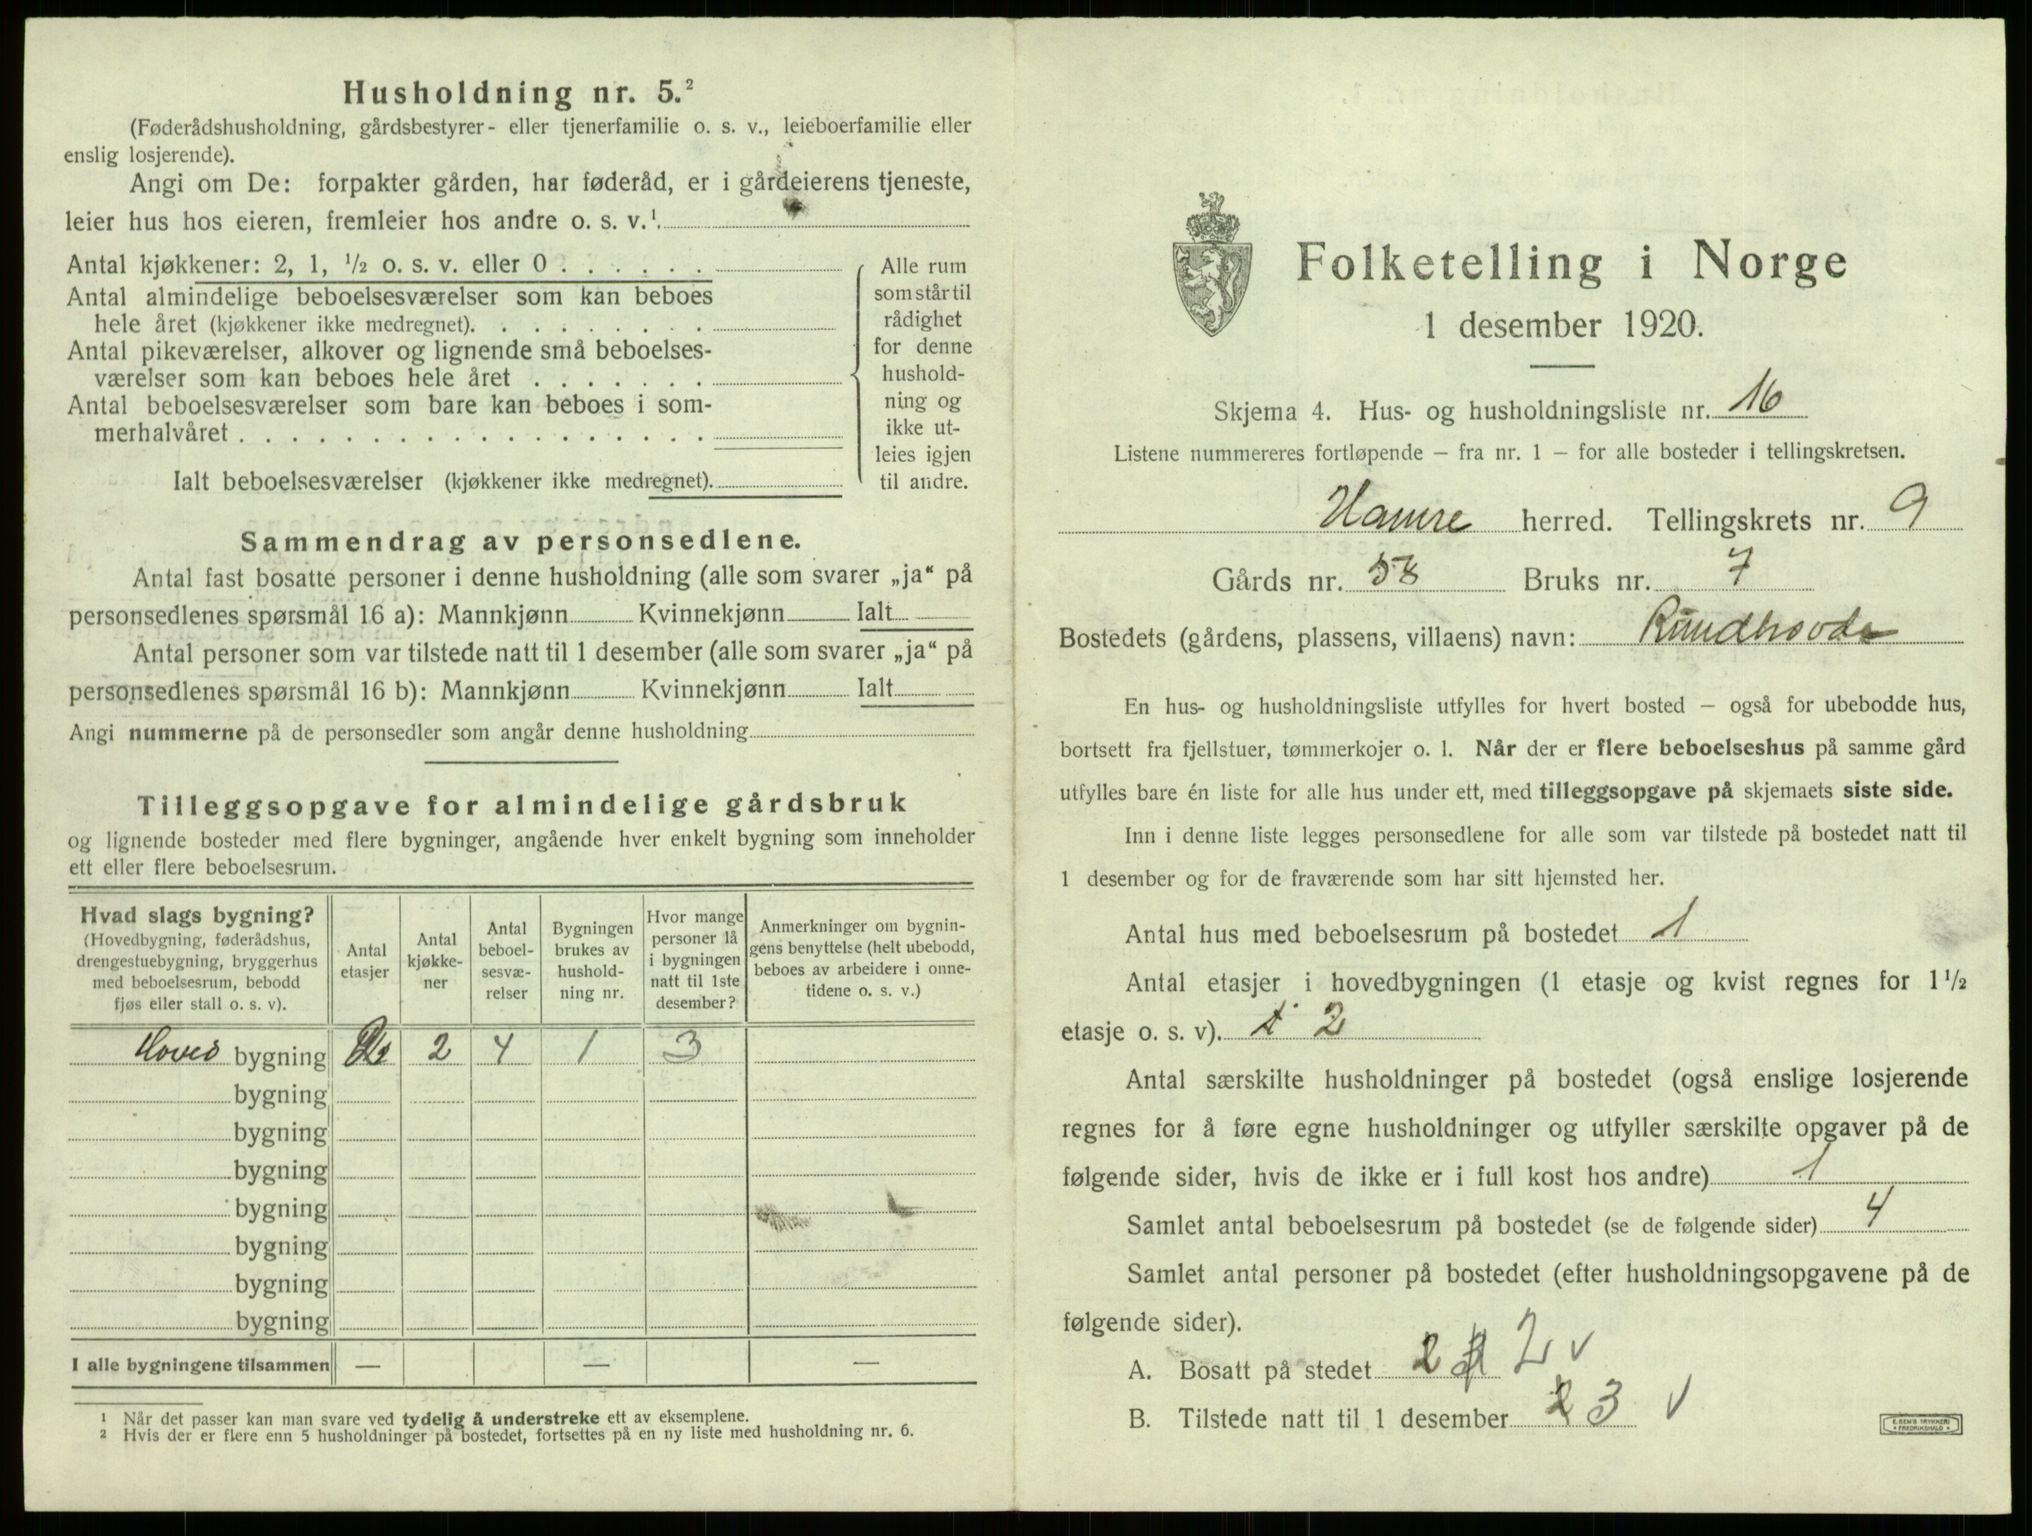 Husholdning nr. 5.²
(Føderådshusholdning, gårdsbestyrer- eller tjenerfamilie o. s. v., leieboerfamilie eller
enslig losjerende).
Angi om De: forpakter gården, har føderåd, er i gårdeierens tjeneste,
leier hus hos eieren, fremleier hos andre o. s. v.¹
Antal kjøkkener: 2, 1, ½ o. s. v. eller 0 . . . . . .
Antal almindelige beboelsesværelser som kan beboes
hele året (kjøkkener ikke medregnet). . . . . . . . .
Antal pikeværelser, alkover og lignende små beboelses-
værelser som kan beboes hele året . . . . . . .
Antal beboelsesværelser som bare kan beboes i som-
merhalvåret . . . . . . . . . . . . . . . . . .
Ialt beboelsesværelser (kjøkkener ikke medregnet).
Alle rum
som står til
rådighet
for denne
hushold-
ning og
ikke ut-
leies igjen
til andre.
Sammendrag av personsedlene.
Antal fast bosatte personer i denne husholdning (alle som svarer „ja“ på
personsedlenes spørsmål 16 a): Mannkjønn Kvinnekjønn Ialt
Antal personer som var tilstede natt til 1 desember (alle som svarer „ja“ på
personsedlenes spørsmål 16 b): Mannkjønn Kvinnekjønn Ialt
Angi nummerne på de personsedler som angår denne husholdning
Tilleggsopgave for almindelige gårdsbruk
og lignende bosteder med flere bygninger, angående hver enkelt bygning som inneholder
ett eller flere beboelsesrum.
Hvad slags bygning?
(Hovedbygning, føderådshus,
drengestuebygning, bryggerhus
med beboelsesrum, bebodd
fjøs eller stall o. s. v).
Antal
etasjer
Antal
kjøkke-
ner
Antal
beboel-
sesvæ-
relser
Bygningen
brukes av
hushold-
ning nr.
Hvor mange
personer lå
i bygningen
natt til 1ste
desember?
Anmerkninger om bygnin-
gens benyttelse (helt ubebodd,
beboes av arbeidere i onne-
tidene o. s. v.)
Hoved bygning 2 2 4 1 3
bygning
bygning
bygning
bygning
bygning
bygning
bygning
I alle bygningene tilsammen — — —
¹ Når det passer kan man svare ved tydelig å understreke ett av eksemplene.
² Hvis der er flere enn 5 husholdninger på bostedet, fortsettes på en ny liste med husholdning nr. 6.
Folketelling i Norge
1 desember 1920.
Skjema 4. Hus- og husholdningsliste nr. 16
Listene nummereres fortløpende — fra nr. 1 — for alle bosteder i tellingskretsen.
Hamre herred. Tellingskrets nr. 9
Gårds nr. 58 Bruks nr. 7
Bostedets (gårdens, plassens, villaens) navn: Rundhovde
En hus- og husholdningsliste utfylles for hvert bosted — også for ubebodde hus,
bortsett fra fjellstuer, tømmerkojer o. l. Når der er flere beboelseshus på samme gård
utfylles bare én liste for alle hus under ett, med tilleggsopgave på skjemaets siste side.
Inn i denne liste legges personsedlene for alle som var tilstede på bostedet natt til
1 desember og for de fraværende som har sitt hjemsted her.
Antal hus med beboelsesrum på bostedet 1
Antal etasjer i hovedbygningen (1 etasje og kvist regnes for 1½
etasje o. s. v). 2
Antal særskilte husholdninger på bostedet (også enslige losjerende
regnes for å føre egne husholdninger og utfyller særskilte opgaver på de
følgende sider, hvis de ikke er i full kost hos andre) 1
Samlet antal beboelsesrum på bostedet (se de følgende sider) 4
Samlet antal personer på bostedet (efter husholdningsopgavene på de
følgende sider).
A. Bosatt på stedet 2 2 v
B. Tilstede natt til 1 desember 3 v
E. SEM'S TRYKKERI
FREDRIKSHALD